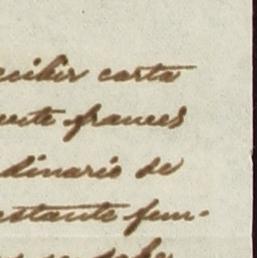 ecibir carta
ente frances
dinario de
estante fem-